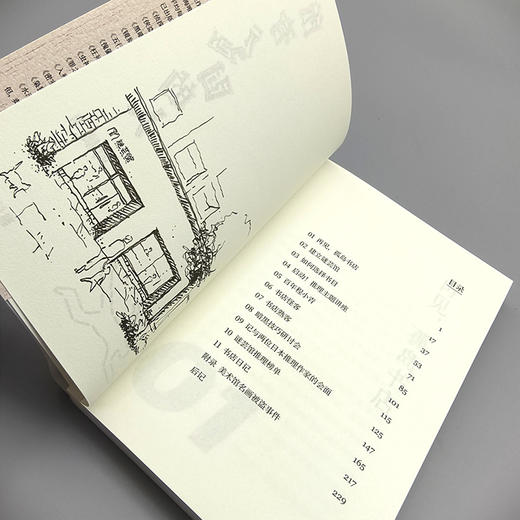 谜芸馆
目录
01 再见，孤岛书店 1
02 建立谜芸馆 17
03 如何选择书目 37
04 启动！推理主题讲座 53
05 首审程小青 71
06 书店怪客 85
07 书店熟客 101
08 暗黑技巧研讨会 115
09 记与两位日本推理作家的会面 125
10 谜芸馆推理榜单 147
11 书店日记 165
附录 美术馆名画被盗事件 217
后记 229